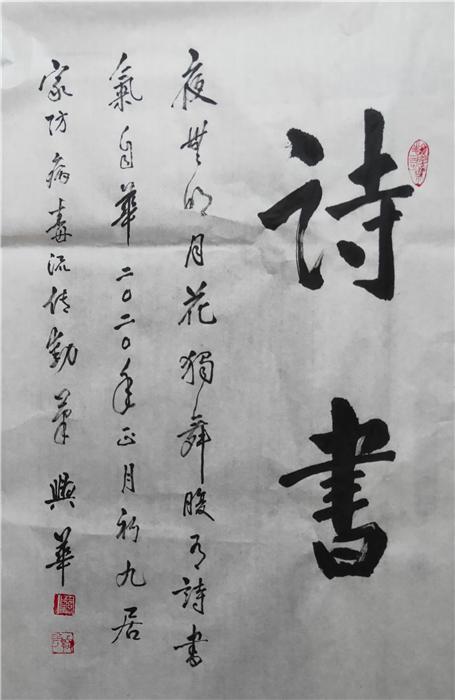 詩書
夜無明月花獨舞腹有詩書
氣自華二〇二〇年正月初九居
家防病毒流传勤筆興華